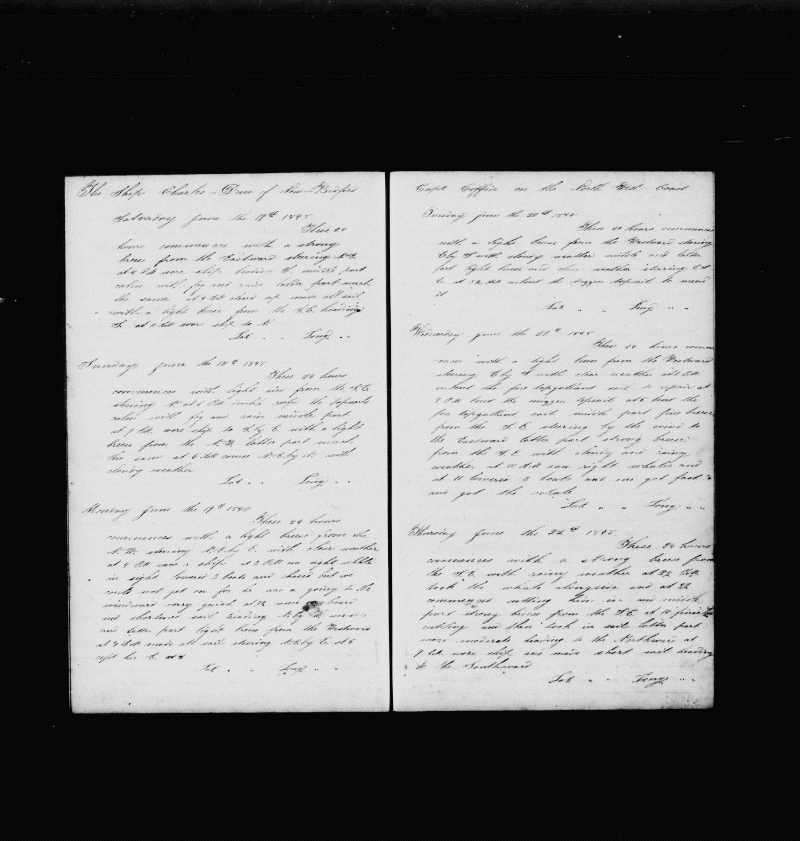 The Ship Charles Drew of New Bedford
Saturday June the 17th 1845
These 24
hours commences with a strong
breeze from the Eastward steering N.E.
at 4 P.M wore ship heading S. middle part
calm with fog and rain latter part much
the same at 4 A.M cleard up made all sail
with a light breeze from the S.E. heading
S. at 6 A.M wore ship to N
Lat " " Long " "
Sunday June the 18th 1845
These 24 hours
commences with light airs from the S.E.
steering N at 6 P.M double reefs the topsails
calm with fog and rain middle part
at 9 P.M. wore ship to S. by E. with a light
breeze from the latter part much
the same at 6 A.M N.E. by N. with
cloudy weather
Lat " " Long " "
Monday June the 19th 1845
These 24 hours
commences with a light breeze from the
N.W. steering N.E. by E. with clear weather
at 4 P.M saw a ship at 3 P.M saw right whale
in sight lowered 3 boats and chased but we
could not get on for he was a going to the
windward very quick at came on board
and shortened sail heading N. by W. middle
and latter part light breeze from the Westward
at 4 A.M made all sail steering N.E. by E. at 6
kept her E.
Lat " " Long " "
Capt Coffin on the North West Coast
Tuesday June the 20th 1845
These 24 hours commences
with a light breeze from the Westward steering
E by S with cloudy weather middle and latter
part light breeze and clear weather steering E
E. at unbent the mizzen topsail to mend
it
Lat " " Long " "
Wednesday June the 21st 1845
These 24 hours comm
ences with a light breeze from the Westward
steering E by S with clear weather at P.M
unbent the fore topgallant sail to repair at
4 P.M bent the mizzen topsail at 6 bent the
fore topgallant sail middle part fine breeze
from the S.E. steering by the wind to
the Eastward latter part strong breeze
from the S.E. with cloudy and rainy
weather at 10 A.M saw right whales and
at 11 lowered 3 boats and one got fast
and got the whale
Lat " " Long " "
Thursday June the 22d 1845
These 24 hours
commences with a strong breeze from
the S.E. with rainy weather at P.M
took the whale alongside and at
commenced cutting him in and middle
part strong breeze from the S.E. at 10 finished
cutting and then took in sail latter part
more moderate heading to the Northward at
9 A.M wore ship and made short sail heading
to the Southward
Lat " " Long " "